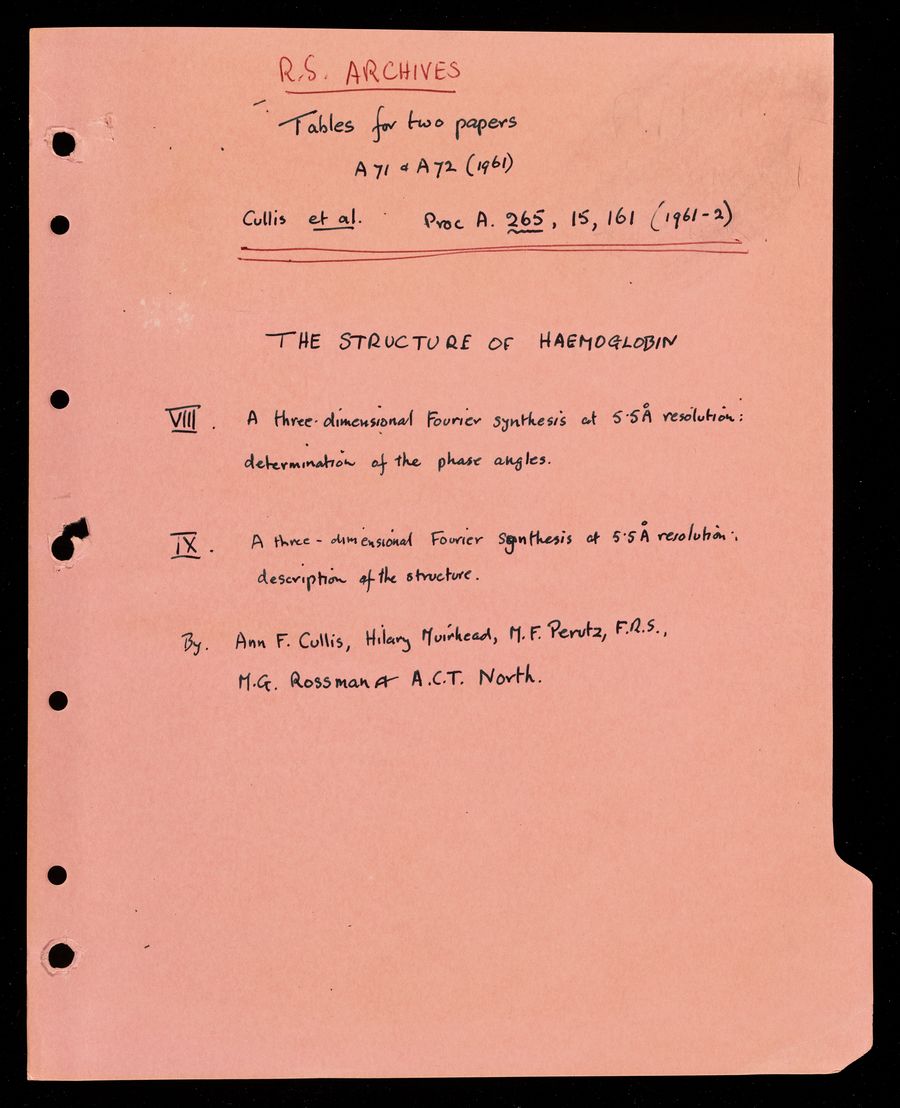 R.S. ARCHIVES
Tables for two papers
A 71 & A 72 (1961)
Cullis et al. Proc A. 265, 15, 161 (1961-2)
THE STRUCTURE OF HAEMOGLOBIN
VIII. A three-dimensional Fourier synthesis at 5·5Å resolution:
determination of the phase angles.
IX. A three-dimensional Fourier synthesis at 5·5Å resolution:
description of the structure.
By. Ann F. Cullis, Hilary Muirhead, M.F. Perutz, F.R.S.,
M.G. Rossman & A.C.T. North.